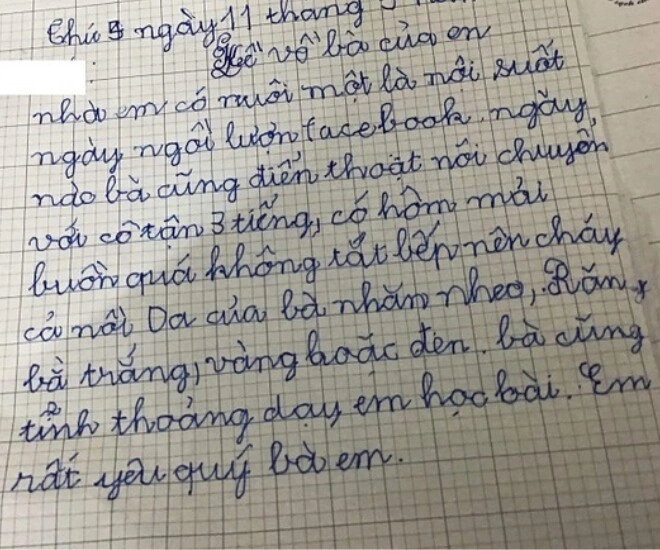 thứ 5 ngày 11 tháng
Kể về bà của em
nhà em có nuôi một là nội suốt
ngày ngồi lướn facebook. ngày
nào bà cũng điển thoạt nói chuyên
với cô tận 3 tiếng, có hôm mải
buôn quá không tắt bếp nên cháy
cả nồi Da của bà nhăn nheo, Răng
bà trắng, vàng hoặc đen. bà cũng
tỉnh thoảng dạy em học bài. Em
rất yêu quý bà em.